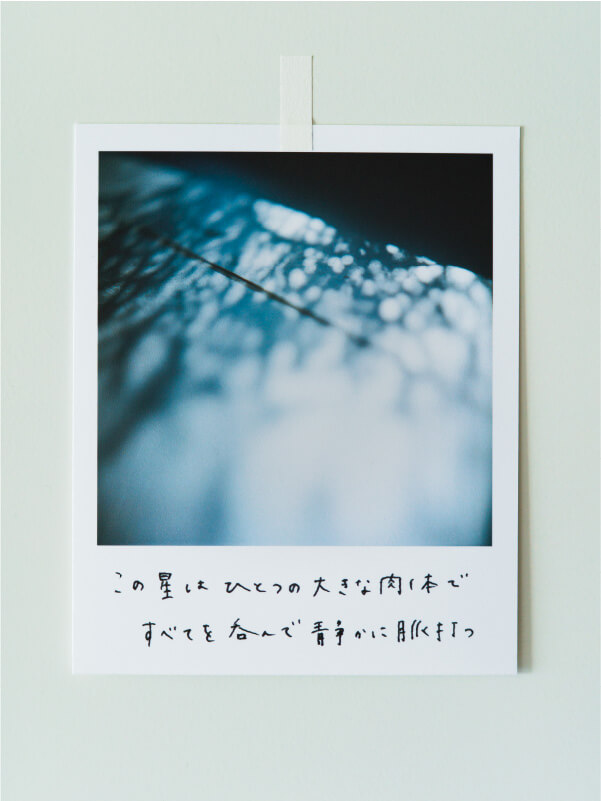 この星は ひとつの大きな肉体で
すべてを呑んで静かに脈打つ